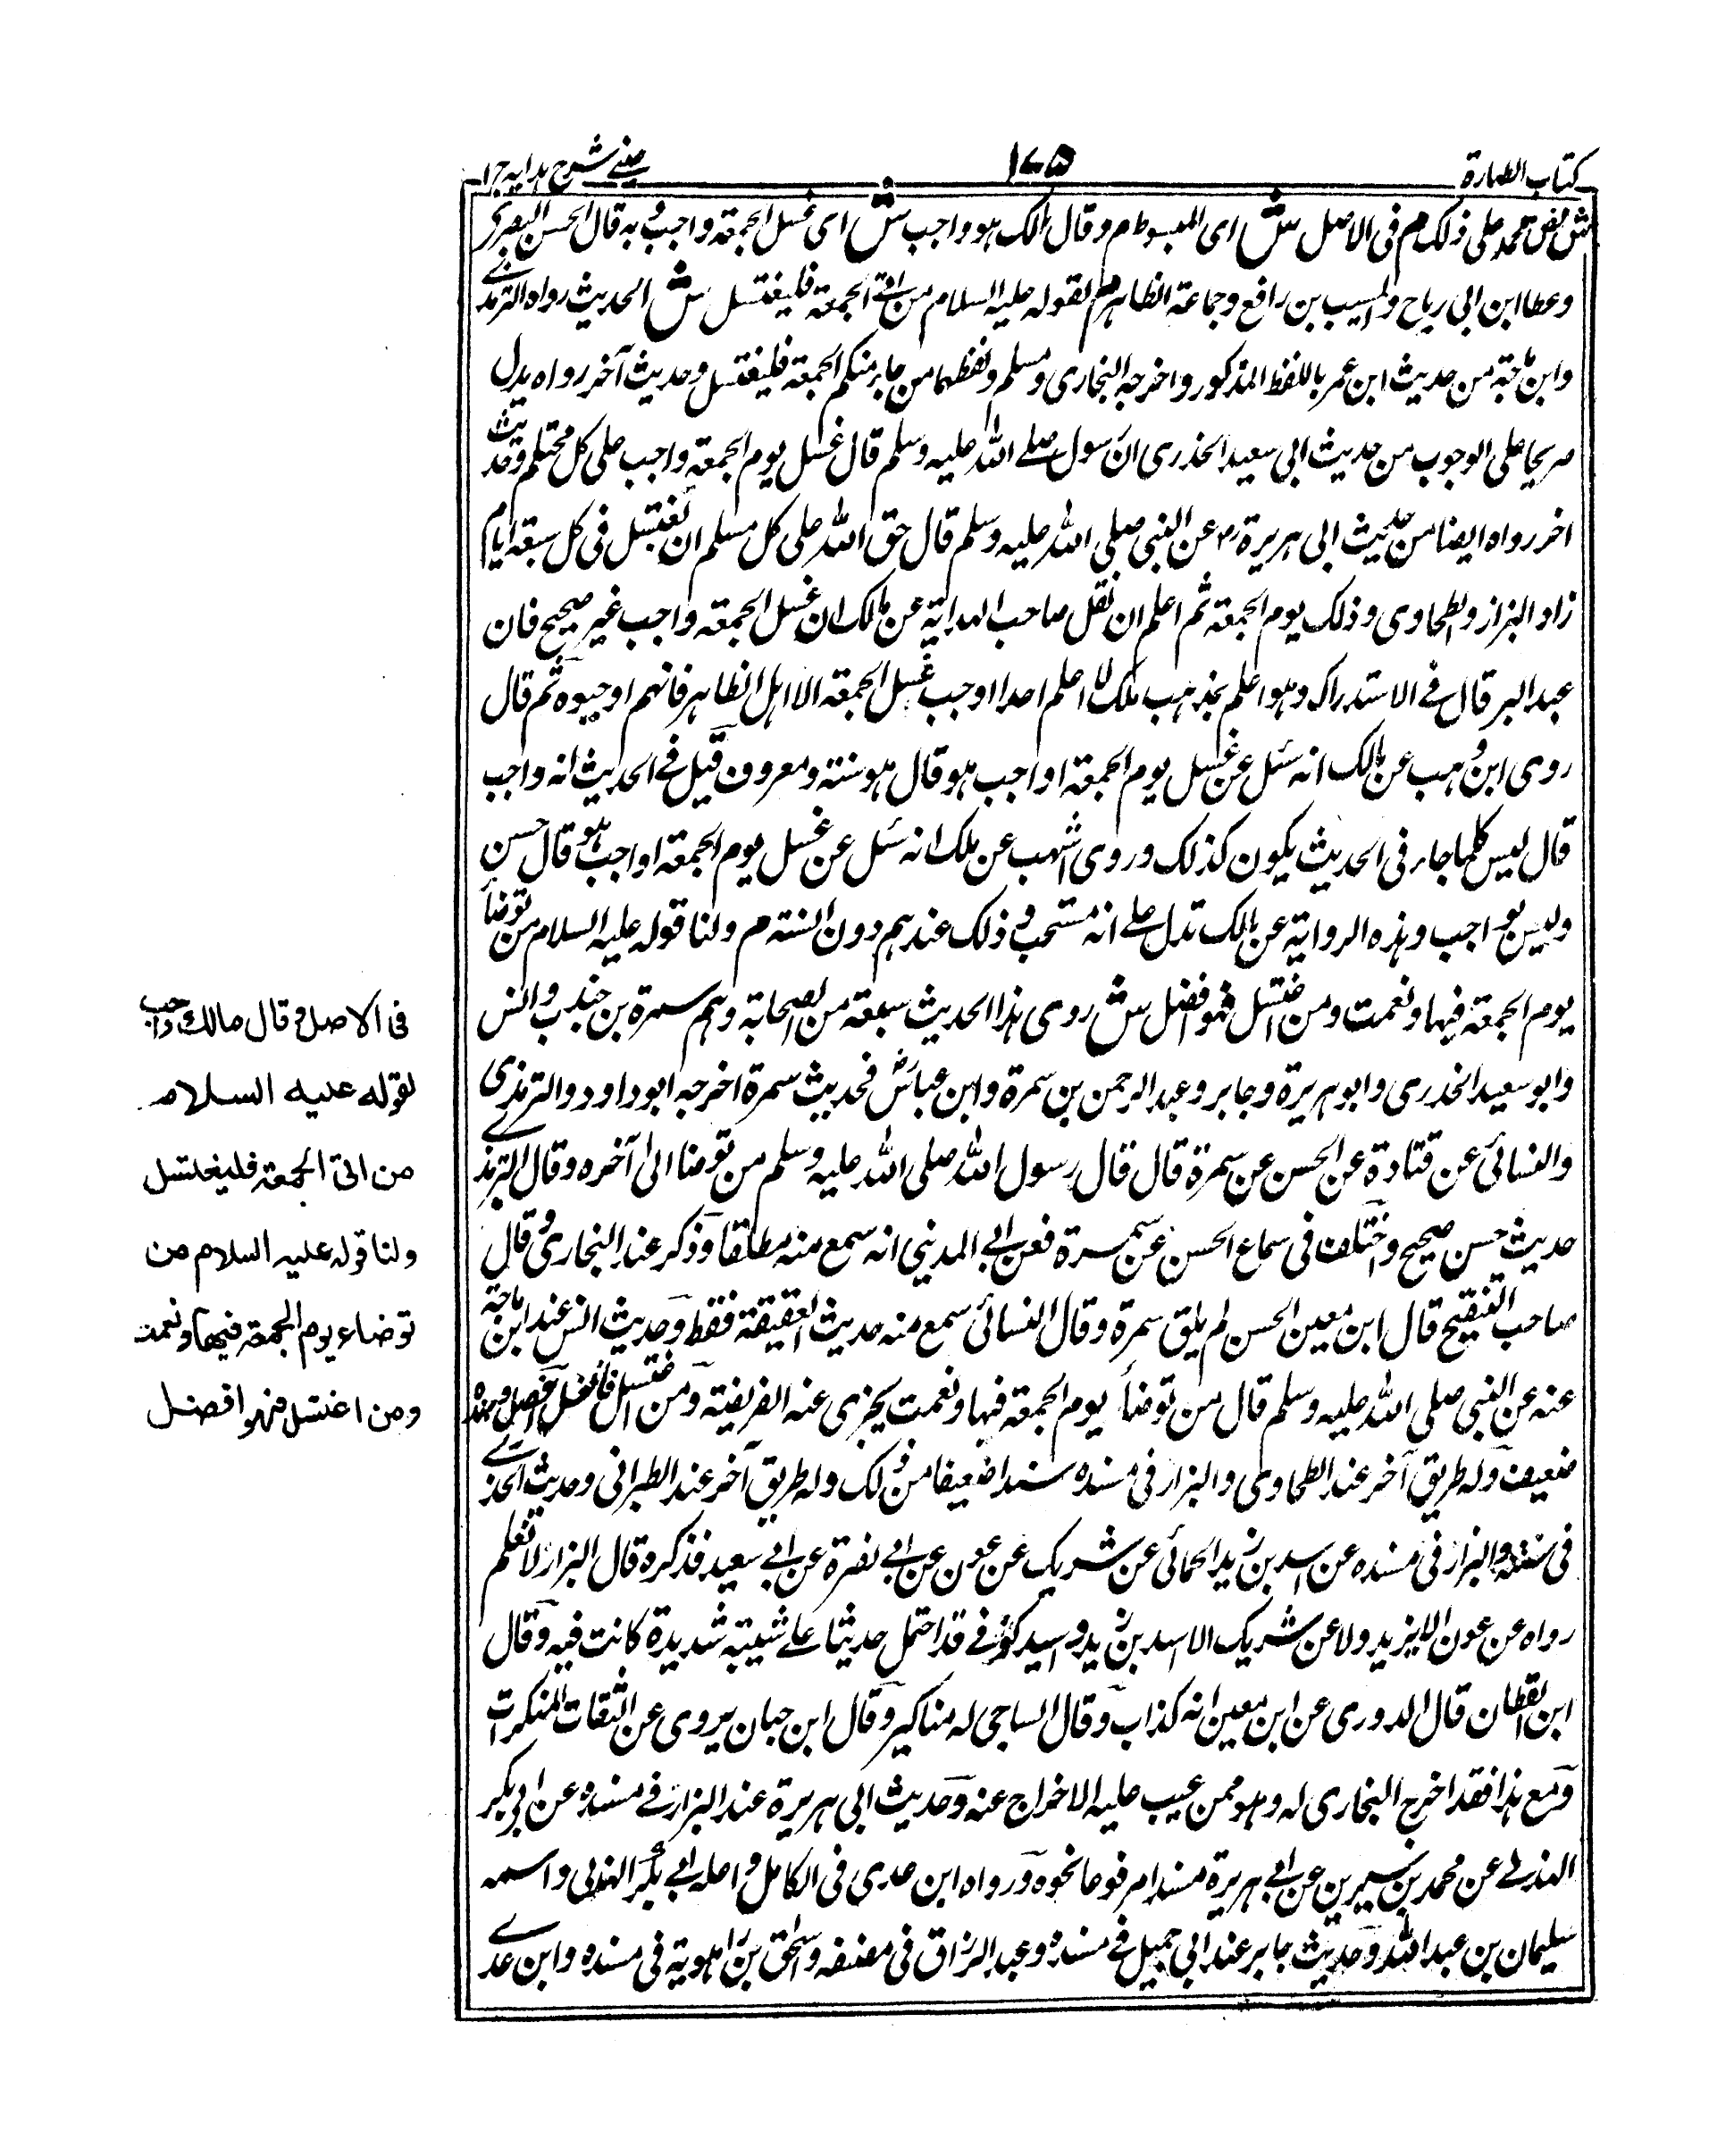 كتاب الطهارة
١٧٥
عينى شرح هدايه ج ١
ش نص محمد على ذلك م فى الاصل ش اى المبسوط م وقال مالك هو واجب ش اى غسل الجمعة واجب وبه قال الحسن البصرى
وعطا ابن ابى رباح والمسيب بن رافع وجماعة الظاهر م لقوله عليه السلام من اتى الجمعة فليغتسل ش الحديث رواه الترمذى
وابن ماجة من حديث ابن عمر باللفظ المذكور واخرجه البخارى ومسلم ولفظهما من جاء منكم الجمعة فليغتسل وحديث آخر رواه يدل
صريحا على الوجوب من حديث ابى سعيد الخدرى ان رسول صلى الله عليه وسلم قال غسل يوم الجمعة واجب على كل محتلم وحديث
اخر رواه ايضا من حديث ابى هريرة رض عن النبى صلى الله عليه وسلم قال حق الله على كل مسلم ان يغتسل فى كل سبعة ايام
زاد البزاز والطحاوى وذلك يوم الجمعة ثم اعلم ان نقل صاحب الهداية عن مالك ان غسل الجمعة واجب غير صحيح فان
عبد البر قال فى الاستدراك وهو اعلم بمذهب ملك لا اعلم احدا اوجب غسل الجمعة الا اهل الظاهر فانهم اوجبوه ثم قال
روى ابن وهب عن مالك انه سئل عن غسل يوم الجمعة اواجب هو قال هو سنة ومعروف قيل فى الحديث انه واجب
قال ليس كلما جاء فى الحديث يكون كذلك وروى اشهب عن ملك انه سئل عن غسل يوم الجمعة اواجب هو قال حسن
وليس بواجب وهذه الرواية عن مالك تدل على انه مستحب وذلك عندهم دون السنة م ولنا قوله عليه السلام من توضأ
يوم الجمعة فبها ونعمت ومن اغتسل فهو افضل ش روى هذا الحديث سبعة من الصحابة وهم سمرة بن جندب وانس
وابو سعيد الخدرى وابو هريرة وجابر وعبد الرحمن بن سمرة وابن عباس فحديث سمرة اخرجه ابو داود والترمذى
والنسائى عن قتادة عن الحسن عن سمرة قال قال رسول الله صلى الله عليه وسلم من توضا الى آخره وقال الترمذى
حديث حسن صحيح واختلف فى سماع الحسن عن سمرة فعن ابى المدينى انه سمع منه مطلقا وذكر عند البخارى وقال
صاحب التنقيح قال ابن معين الحسن لم يلق سمرة وقال النسائى سمع منه حديث العقيقة فقط وحديث انس عند ابن ماجة
عنه عن النبى صلى الله عليه وسلم قال من توضأ يوم الجمعة فبها ونعمت يجزى عنه الفريضة ومن اغتسل فالغسل افضل وسنده
ضعيف وله طريق آخر عند الطحاوى والبزار فى مسنده سندا ضعيفا من ذلك وله طريق آخر عند الطبرانى وحديث الخدرى
فى سننه والبزار فى مسنده عن اسيد بن زيد الحمائى عن شريك عن عون عن ابى نضرة عن ابى سعيد فذكره قال البزار لا نعلم
رواه عن عون الا يزيد ولا عن شريك الا اسيد بن زيد واسيد كوفى قد احتمل حديثا على شيبته شديدة كانت فيه وقال
ابن القطان قال الدورى عن ابن معين انه كذاب وقال الساجى له مناكير وقال ابن حبان يروى عن الثقات المنكرات
ومع هذا فقد اخرج البخارى له وهو ممن عيب عليه الاخراج عنه وحديث ابى هريرة عند البزار فى مسنده عن ابى بكر
الهذلى عن محمد بن سيرين عن ابى هريرة مسندا مرفوعا نحوه ورواه ابن عدى فى الكامل واعله بابى بكر الهذلى واسمه
سليمان بن عبد الله وحديث جابر عند ابى جميل فى مسنده وعبد الرزاق فى مصنفه واسحق بن راهوية فى مسنده وابن عدى
فى الاصل وقال مالك واجب
لقوله عليه السلام
من اتى الجمعة فليغتسل
ولنا قوله عليه السلام من
توضاء يوم الجمعة فبها ونعمت
ومن اغتسل فهو افضل